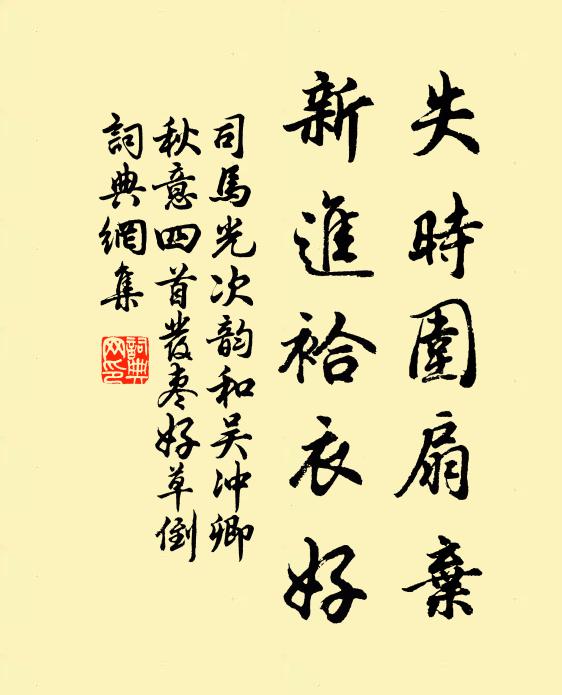 失時團扇棄
新進袷衣好
司馬光次韵和吴冲卿
秋意四首發枣好草倒
詞典網集
詞典网印